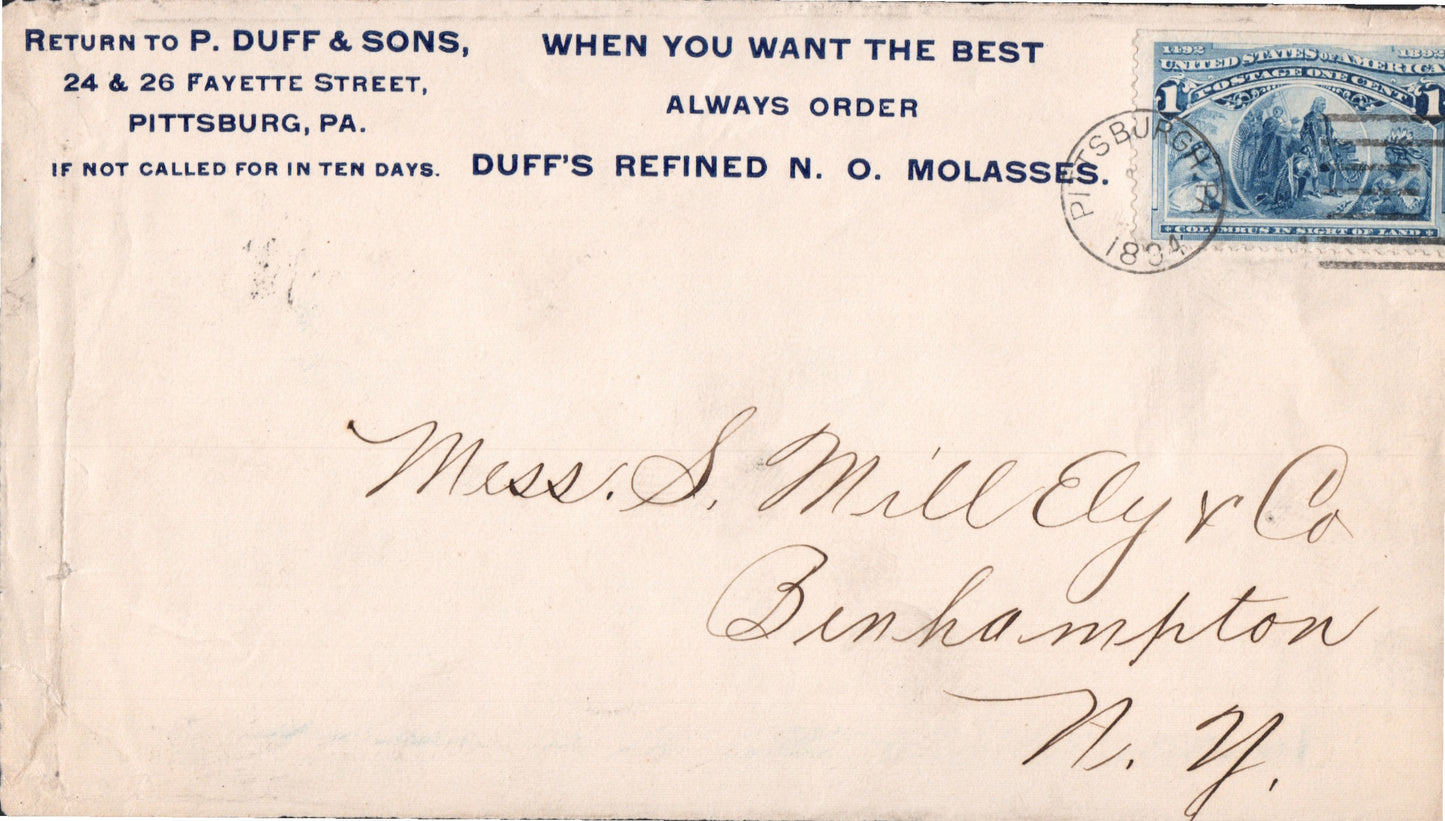 RETURN TO P. DUFF & SONS,
24 & 26 FAYETTE STREET,
PITTSBURG, PA.
IF NOT CALLED FOR IN TEN DAYS.
WHEN YOU WANT THE BEST
ALWAYS ORDER
DUFF'S REFINED N. O. MOLASSES.
1492 1892
UNITED STATES OF AMERICA
POSTAGE ONE CENT
1 1
COLUMBUS IN SIGHT OF LAND
PITTSBURGH
1894
Mess. S. Mill Ely & Co
Binhampton
N. Y.